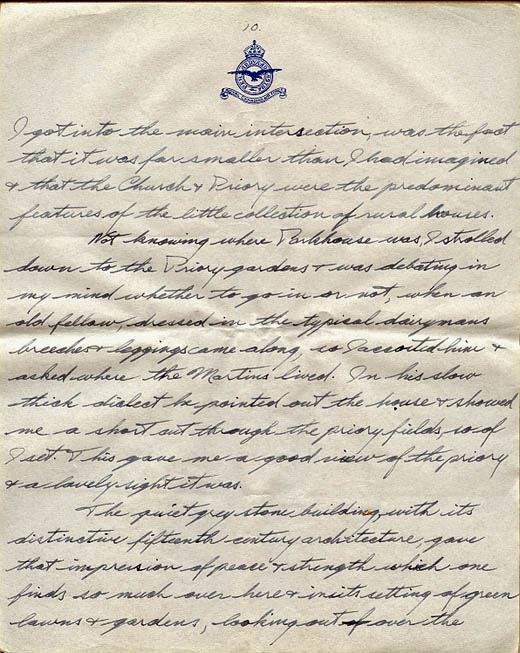 10.
I got into the main intersection, was the fact
that it was far smaller than I had imagined
& that the Church & Priory were the predominant
features of the little collection of rural houses.
Not knowing where Parkhouse was, I strolled
down to the Priory gardens & was debating in
my mind whether to go in or not, when an
old fellow, dressed in the typical dairymans
breeches & leggings came along, so I accosted him &
asked where the Martins lived. In his slow
thick dialect he pointed out the house & showed
me a short cut through the priory fields, so off
I set. This gave me a good view of the priory
& a lovely sight it was.
The quiet grey stone building, with its
distinctive fifteenth century architecture, gave
that impression of peace & strength which one
finds so much over here & in its setting of green
lawns & gardens, looking out over the